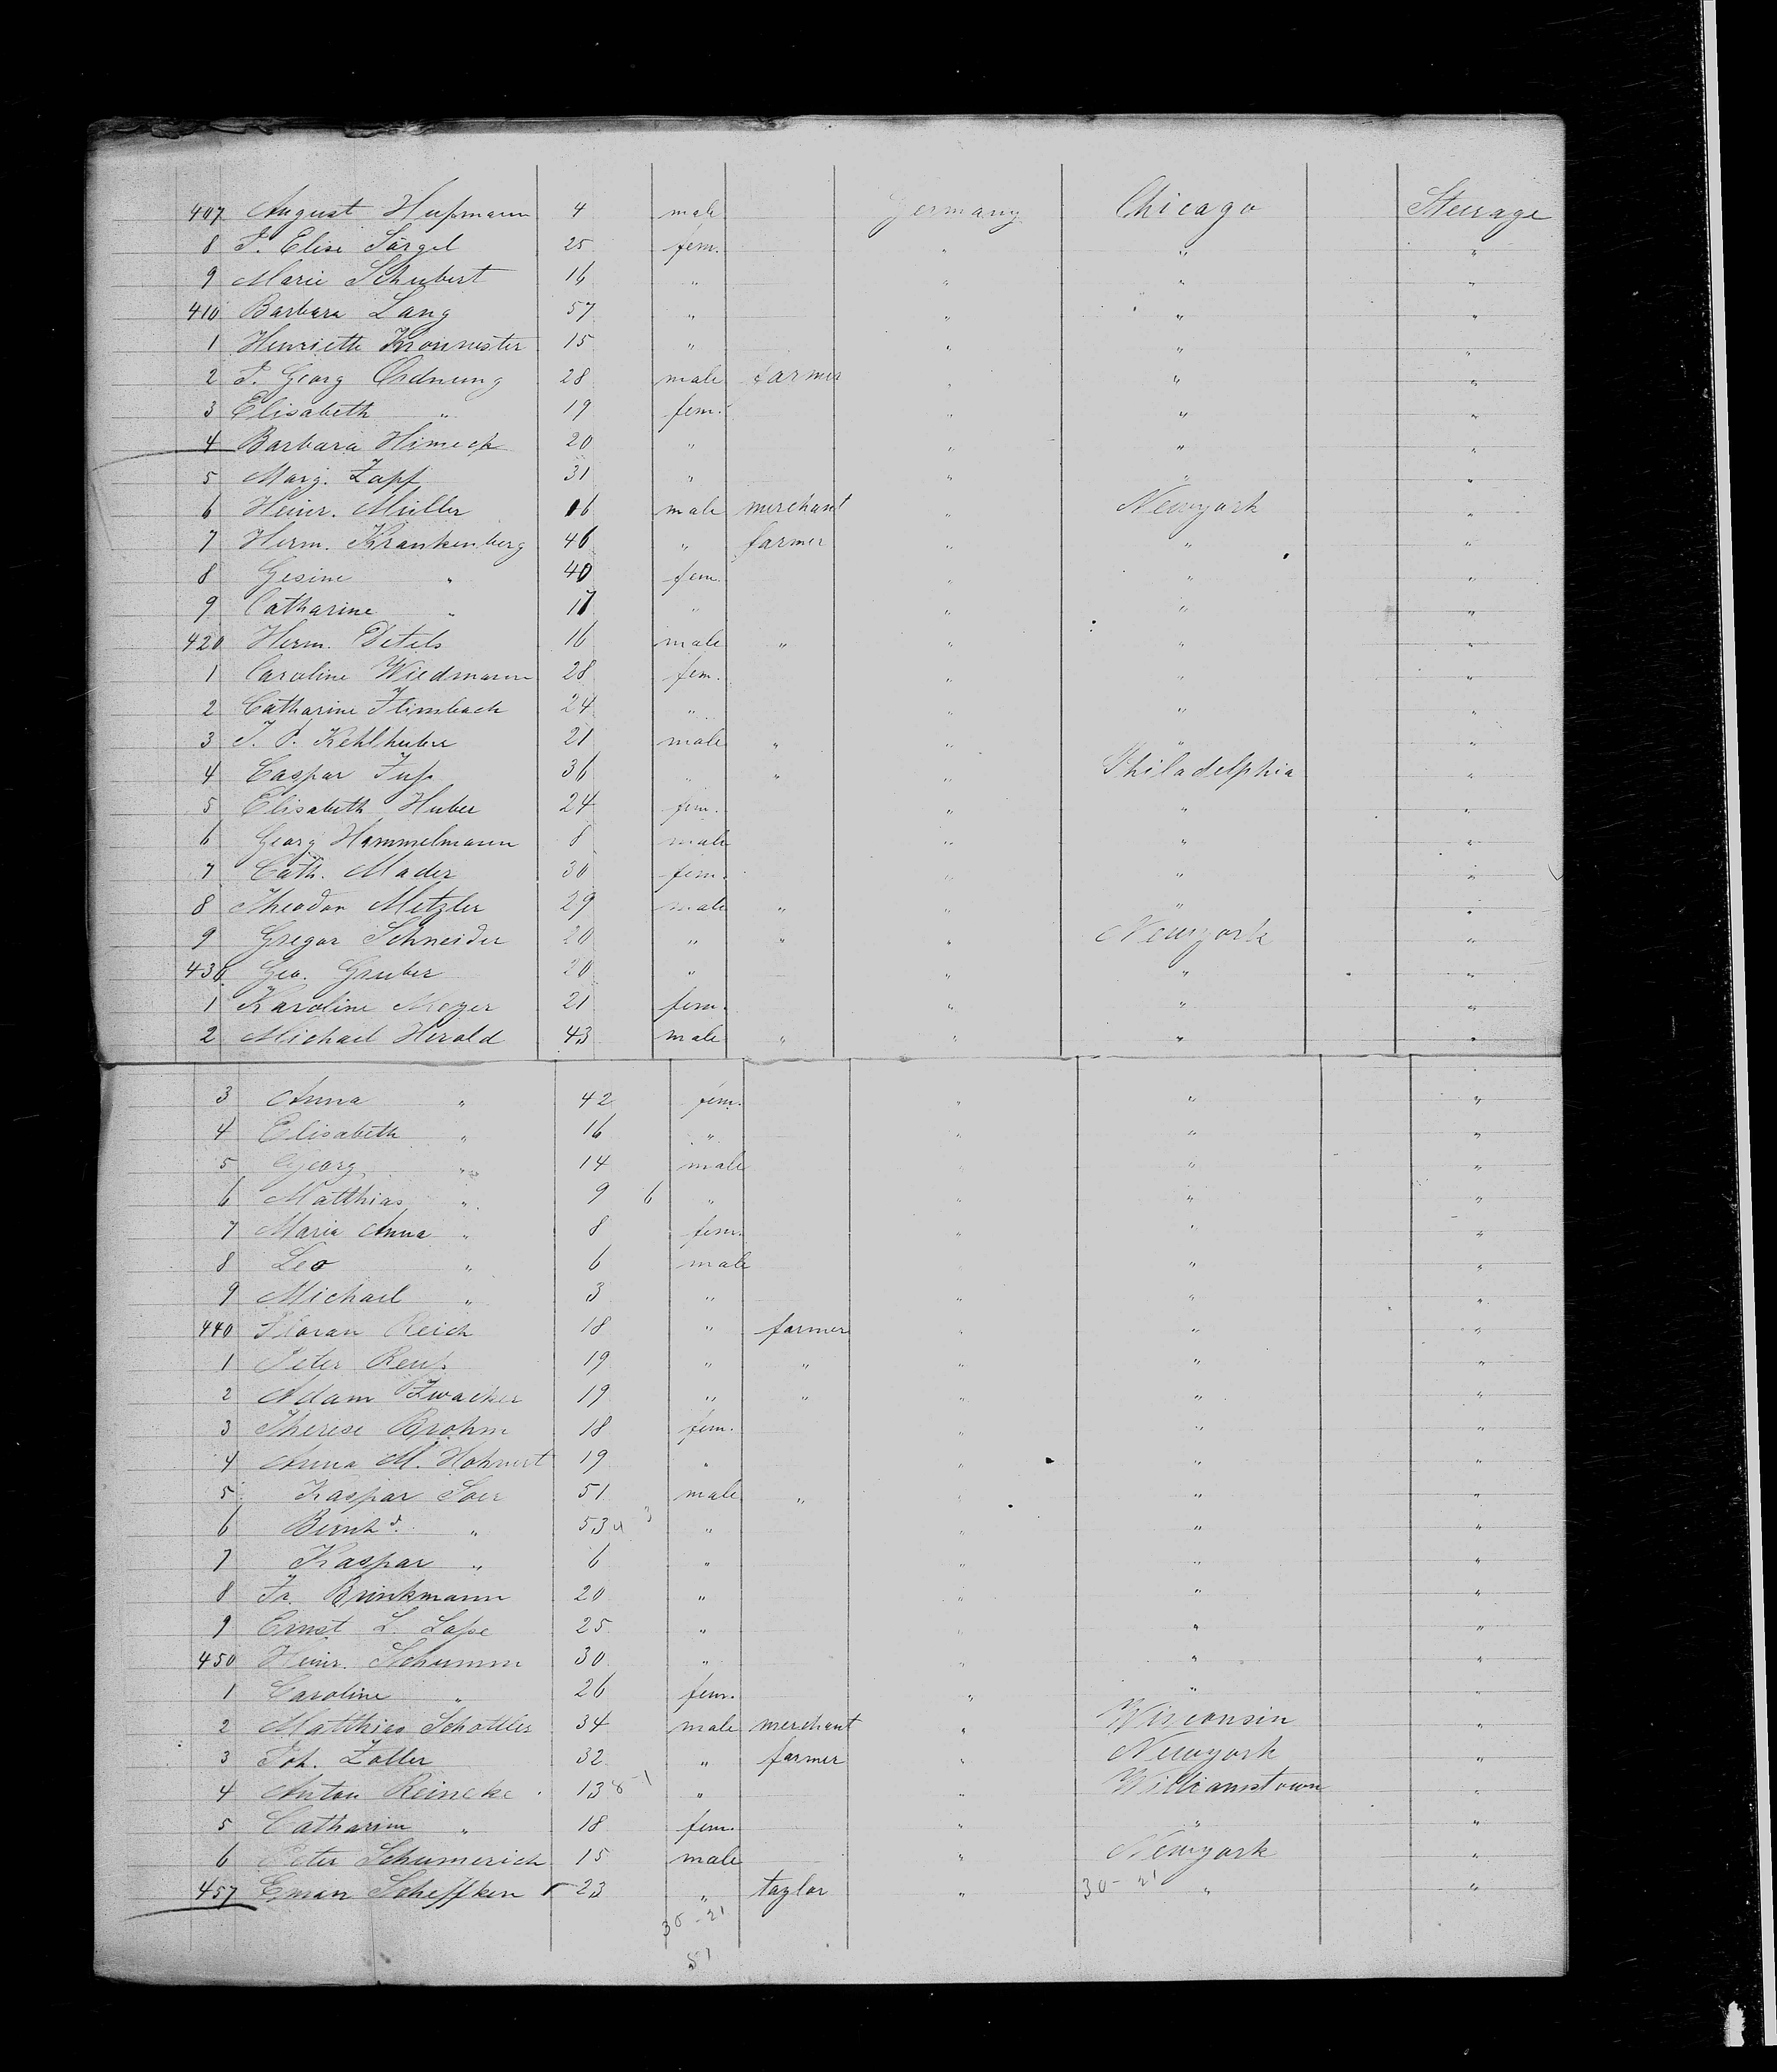 407 August Hußmann 4 male Germany Chicago Steerage
8 P. Elise Särgel 25 fem. " " "
9 Marie Schubert 16 " " " "
410 Barbara Lang 57 " " " "
1 Henriette 15 " " " "
2 P. Georg Ordnung 28 male farmer " " "
3 Elisabeth " 19 fem. " " "
4 Barbara 20 " " " "
5 Marg. Zapf 31 " " " "
6 Heinr. Müller 16 male merchant " Newyork "
7 Herm. Krankenberg 46 " farmer " " "
8 Gesine " 40 fem. " " "
9 Catharine " 17 " " " "
420 Herm. Detels 16 male " " " "
1 Caroline Wiedmann 28 fem. " " "
2 Catharine Flimbach 24 " " " "
3 J. P. Kehlhuber 21 male " " " "
4 Caspar Fuß 36 " " " Philadelphia "
5 Elisabeth Huber 24 fem. " " "
6 Georg Hammelmann 8 male " " "
7 Cath. Mader 30 fem. " " "
8 Theodor Metzler 29 male " " " "
9 Gregor Schneider 20 " " " Newyork "
430 Geo. Gruber 20 " " " "
1 Karoline Meyer 21 fem. " " "
2 Michael Herold 43 male " " " "
3 Anna " 42 fem. " " "
4 Elisabeth " 16 " " " "
5 Georg " 14 male " " "
6 Matthias " 9 6 " " " "
7 Maria Anna " 8 fem. " " "
8 Leo " 6 male " "
9 Michael " 3 " " " "
440 Floran Reich 18 " farmer " " "
1 Peter Reuß 19 " " " " "
2 Adam Zwacker 19 " " " " "
3 Therese Brohm 18 fem. " " "
4 Anna M. Hohnert 19 " " " "
5 Kaspar Soer 51 male " " " "
6 Bernhd. " 53 " " " "
7 Kaspar " 6 " " " "
8 Fr. Brinkmann 20 " " " "
9 Ernst L. Laße 25 " " " "
450 Heinr. Schumm 30 " " "
1 Caroline " 26 fem. " " "
2 Matthias Schottler 34 male merchant " Wisconsin "
3 Joh. Zoller 32 " farmer " Newyork "
4 Anton Reincke 13 " " Williamstown "
5 Catharine " 18 fem. " " "
6 Peter Schumerich 15 male " Newyork "
457 Eman Scheffken 23 " taylor " 30-21 " "
30-21
51